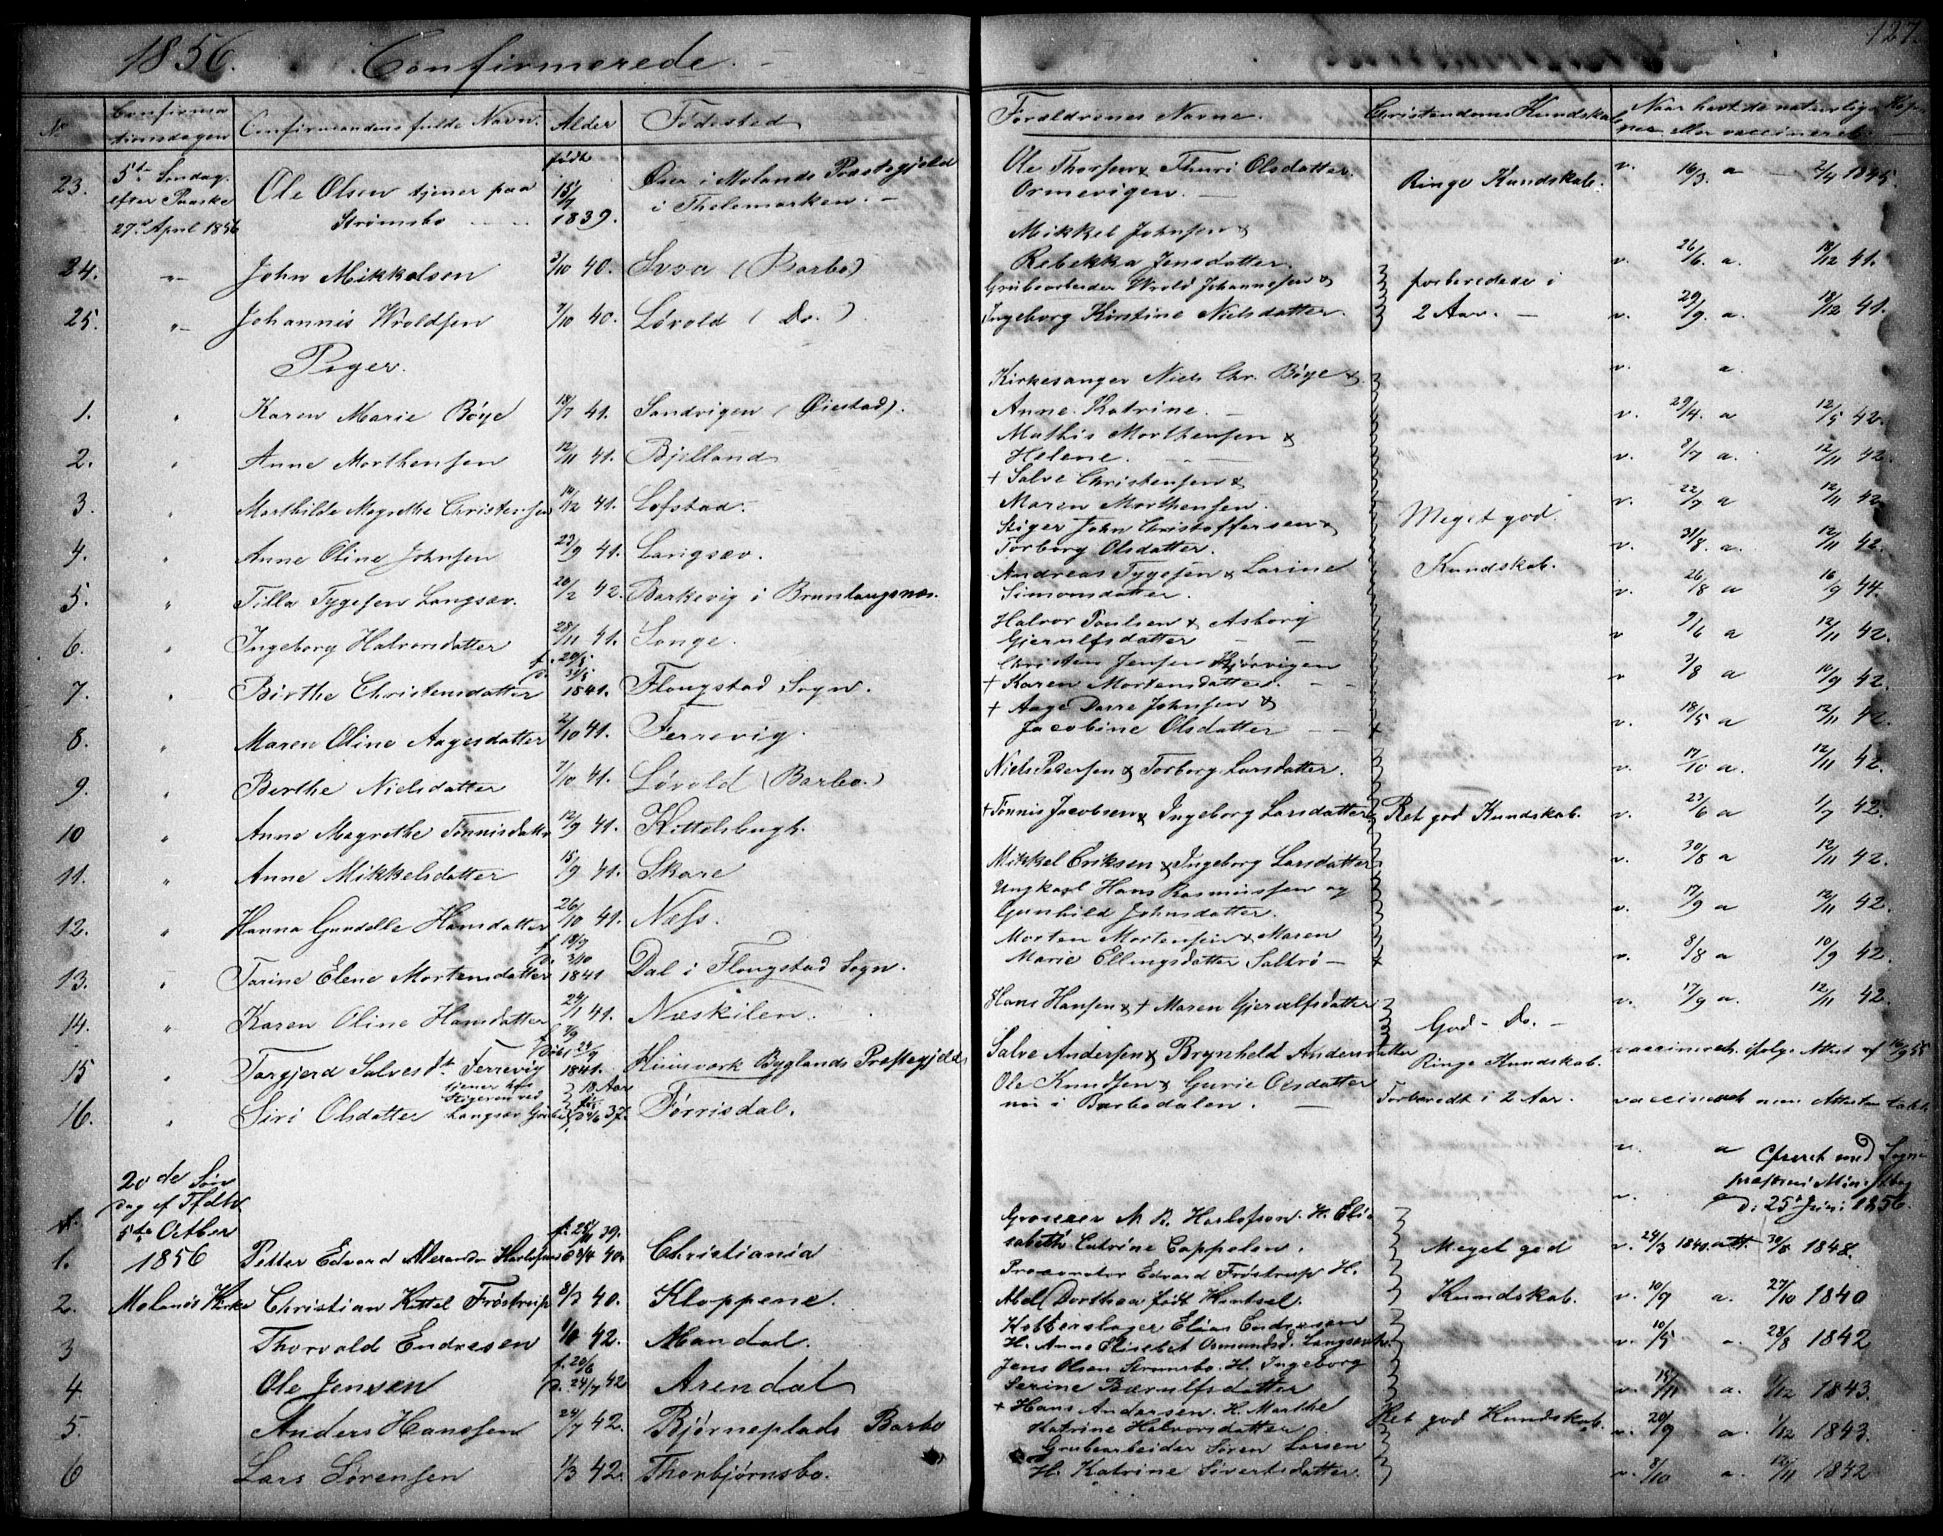 1856. Confirmerede.
127.
No Confirmationsdagen Confirmandens fulde Navn. Alder Fødested Forældrenes Navne. Christendoms Kundskab Naar havt de naturlige Kopper eller vaccineret.
23. 5te Søndag efter Paaske 27de April 1856 Ole Olsen tjener paa Strømsbo født 15/7 1839. i Molands Præstegjeld i Thelemarken. Ole Thorsen & Thuri Olsdatter Ormevigen. Ringe Kundskab. v. 16/3. a 2/4 1845.
24. " John Mikkelsen 3/10 40. (Barbo) Mikkel Johnsen & Rebekka Jensdatter. forberedede i 2 Aar. v. 26/6. a. 18/12 41.
25. " Johannis Wroldsen 7/10 40. Løvold (Do.) Grubearbeider Wrold Johannesen & Ingeborg Kirstine Nielsdatter. v. 29/9. a. 18/12 41.
Piger.
v. a
1. " Karen Marie Bøye 18/7 41. Sandvigen (Øiestad). Kirkesanger Niels Chr. Bøye & Anne Katrine. v. 29/4. a 12/5 42.
2. " Anne Morthensen 12/11 41. Bjelland Mathis Morthensen & Helene. v. 8/7 a. 12/11 42.
3. " Marthilde Magrethe Christensen 14/12 41. Lofstad. + Salve Christensen & Maren Morthensen. Meget god Kundskab. v. 22/7 a 12/11 42
4. " Anne Oline Johnsen 23/9 41. Langsæv. Stiger John Christoffersen & Torborg Olsdatter. v. 31/8. a. 12/11 42.
5. " Tilla Tygesen Langsæv. 20/2 42. Barkevig i Brunlangsnæs. Andreas Tygesen & Larine Simonsdatter. v. 26/8 a 16/9 44.
6. " Ingeborg Halvorsdatter 28/11 41. Songe. Halvor Poulsen & Asborg Gjerulfsdatter v 9/6 a 12/11 42.
7. " Birthe Christensdatter f. 20/5 d. 31/5 1841. Flougstad Sogn. Christen Jensen Hjørvigen + Karen Mortensdatter. v 3/8 a 10/9 42.
8. " Maren Oline Aagesdatter 2/10 41. Ferrevig. + Aage Darre Johnsen & Jacobine Olsdatter v. 18/5 a 12/11 42.
9. " Berthe Nielsdatter 7/10 41. Løvold (Barbo.) Niels Pedersen & Torborg Larsdatter. v. 17/10 a. 12/11 42.
10 " Anne Magrethe Tønnisdatter 12/9 41. Kittelsbugt. + Tønnis Jacobsen & Ingeborg Larsdatter Ret god Kundskab. v. 23/6 a 1/7 42.
11. " Anne Mikkelsdatter 15/9 41. Skare Mikkel Eriksen & Ingeborg Larsdatter v. 30/8 a 12/11 42.
12. " Hanna Gundelle Hansdatter 26/10 41. Næss. Ungkarl Hans Rasmussen og Gunhild Johnsdatter. v. 17/9 a 12/11 42.
13. " Tarine Elene Mortensdatter f. 18/9 d. 3/10 1841 Dal i Flougstad Sogn. Morten Mortensen & Maren Marie Ellingsdatter Saltrø v. 8/8 a 10/9 42.
14. " Karen Oline Hansdatter 24/1 41. Næskilen. Hans Hansen & + Maren Gjerulfsdatter God Do. v. 17/9 a. 12/11 42.
15 " Torgjerd Salvesdt Ferrevig 1841. Byglands Præstegjeld Salve Andersen & Brynheld Andersdatter Ringe Kundskab. vaccineret ifølge Attest af 16/9 55
16. " Siri Olsdatter tjener hos Stigeren ved Langsæv Grube 18 Aar 37. Tørrisdal. Ole Knudsen & Gurie Olsdatter nu i Barbodalen. Forberedt i 2 Aar. vaccineret men Attesten
v. a Ofreret med Sogne
d. 25de Juni 1856.
20de Søndag ef Trfdth 5te Octber 1856 Molands Kirke
1. Petter Edvard Alexander f. 39. d. 40. Christiania Grosserer Elisabeth Catrine Cappelen. Meget god Kundskab. v. 29/3 1840 att. 30/8 1848.
2. Christian Kittel Frøstrup 8/7 40. Kloppene. Procurator Edvard Frøstrup H. Abel Dorthea født Hintsel. v. 10/9 a. 27/10 1840
3 Thorvald Endresen 42. Mandal. Elias Endresen H. Anne Elisebet Osmundsd. v. 10/5 a. 28/8 1842
4 Ole Jensen f. 20/6 d. 24/7 42 Arendal Jens Olsen Strømsbo. H. Ingeborg Serine v. 15/11 a. 1/12 1843.
5 Anders Hanssen 24/7 42. Bjørneplads Barbo + Hans Andersen. H. Marthe Katrine Halvorsdatter Ret god Kundskab. v. 20/9 a. 1/12 1843.
6 Lars Sørensen 1/3 42. Thorbjørnsbo. Grubearbeider Søren Larsen H. Katrine Sivertsdatter. v. 8/10 a. 12/11 1842